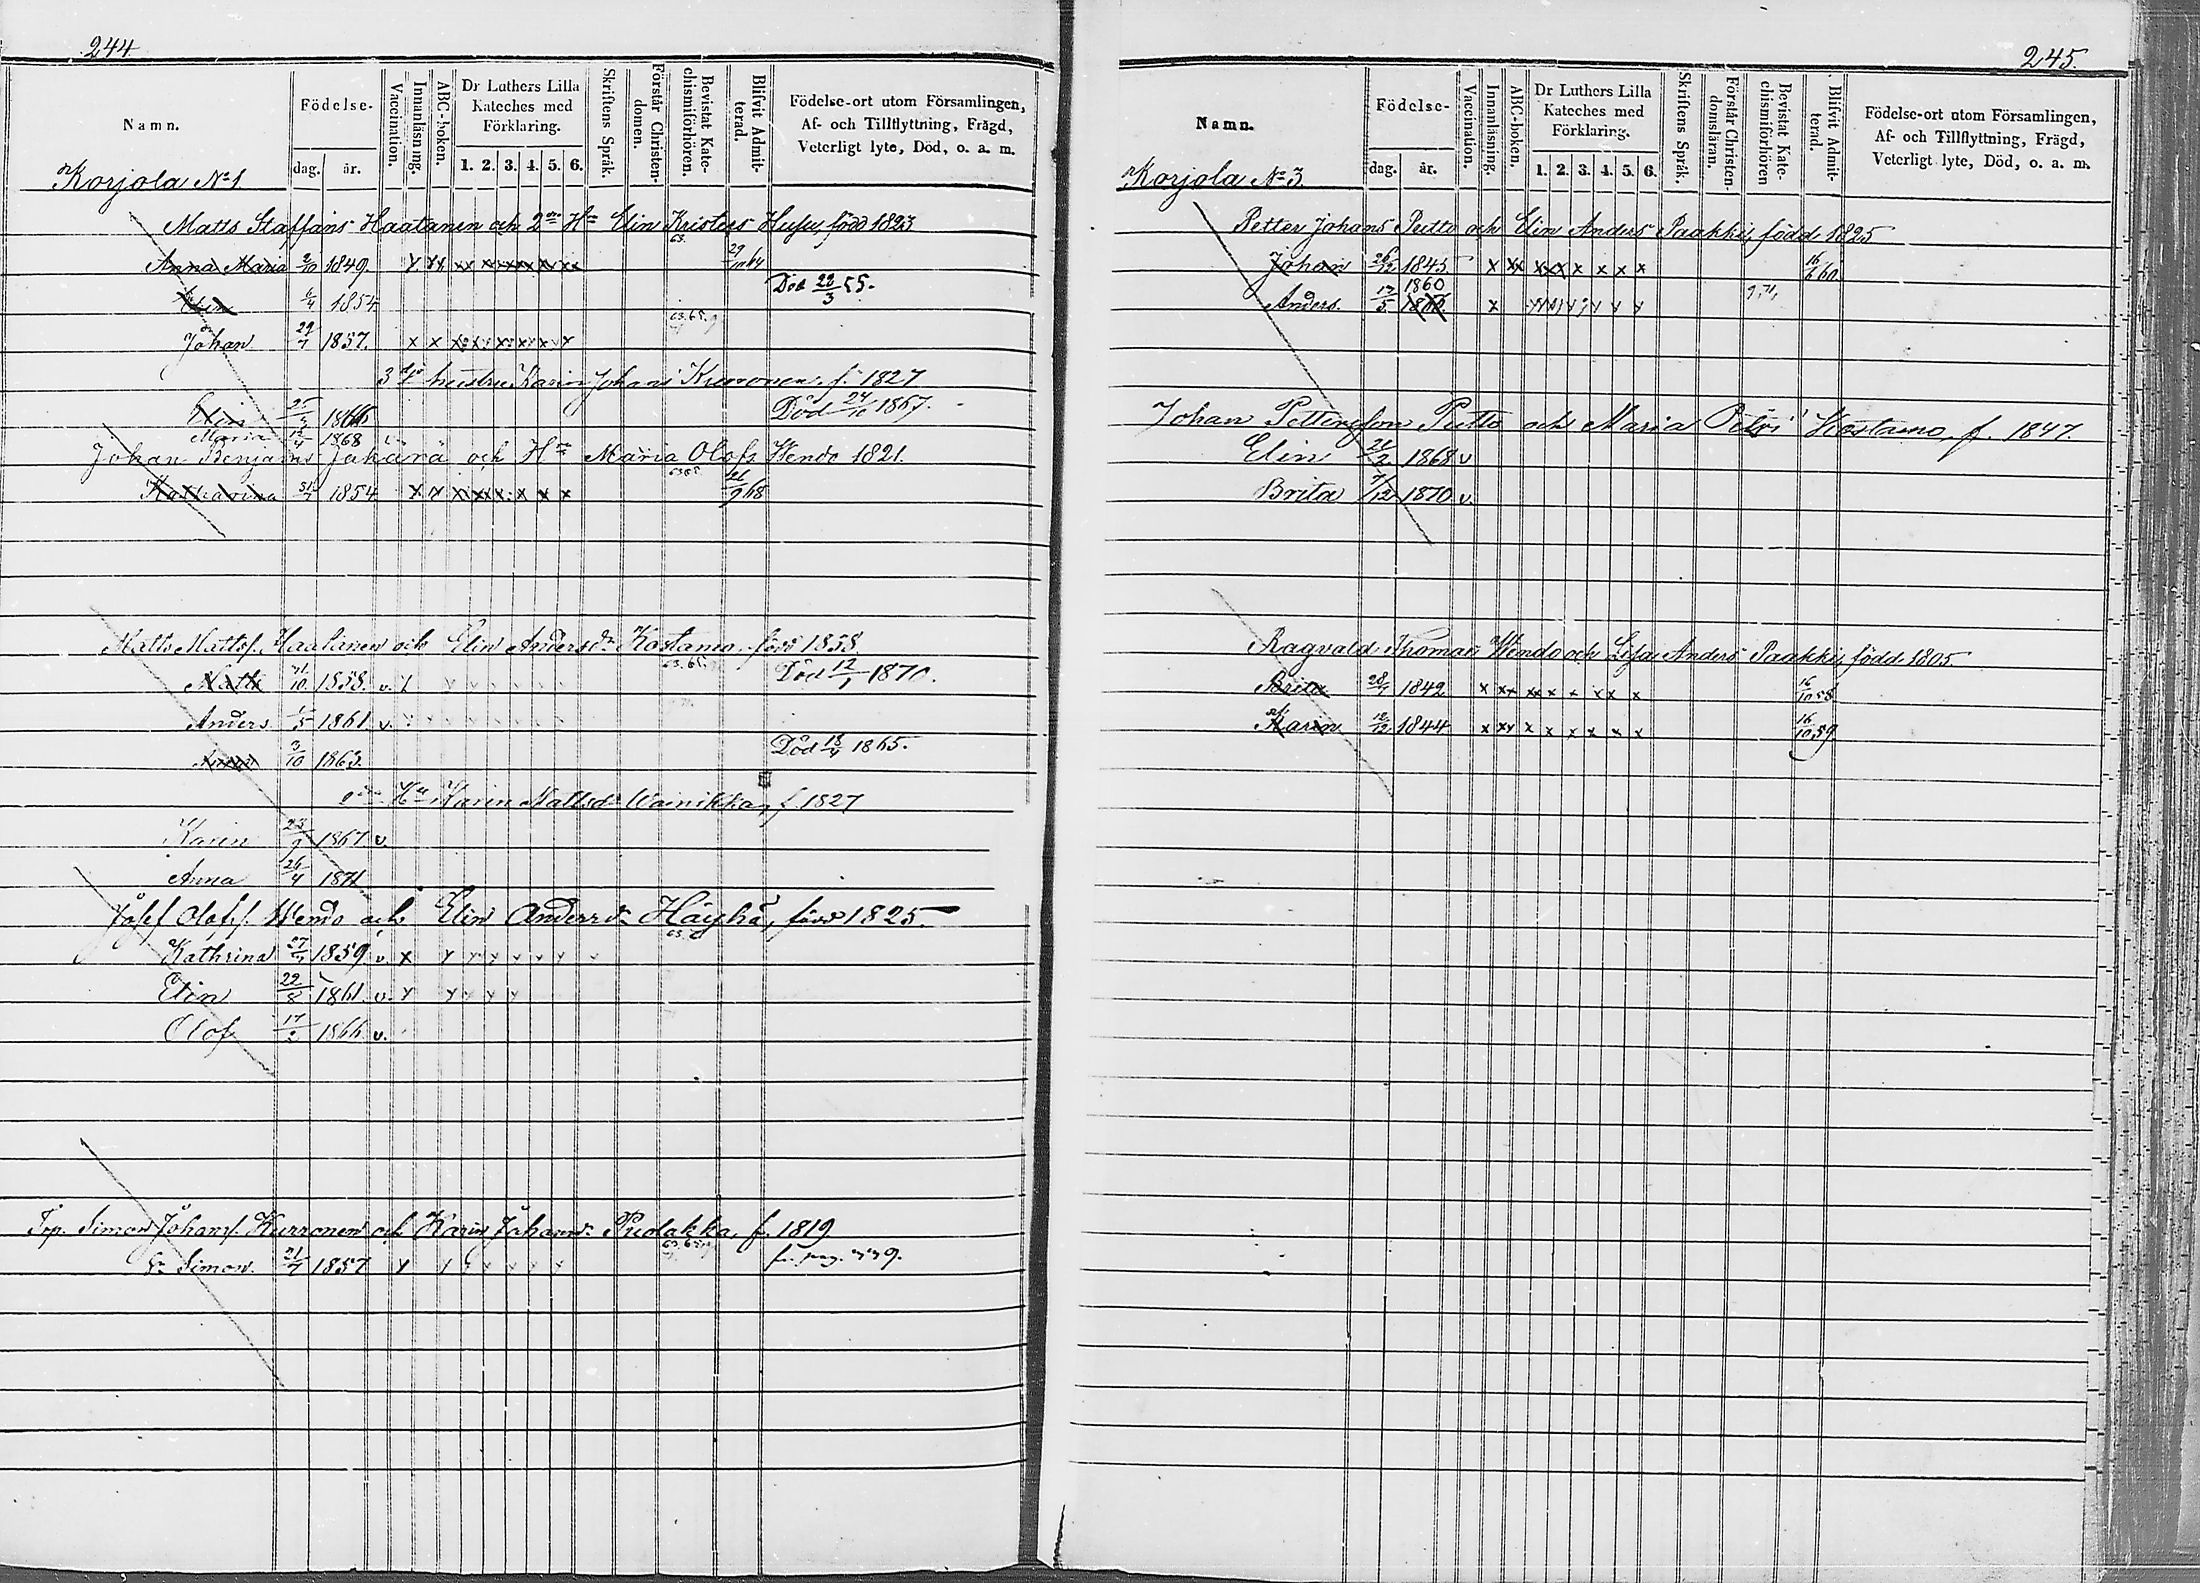 244.
Namn.
Födelse-
dag. år.
Vaccination.
Innanläsning.
ABC-boken.
Dr Luthers Lilla Kateches med Förklaring.
1. 2. 3. 4. 5. 6.
Skriftens Språk.
Förstår Christendomen.
Bevistat Katechismiförhören.
Blifvit Admitterad.
Födelse-ort utom Församlingen,
Af- och Tillflyttning, Frägd,
Veterligt lyte, Död, o. a. m.
Korjola No 1.
Matts Staffans Haatanen och 2dra Hu Elin Kristers Hufu, född 1823
Anna Maria 2/10 1849. 29/10 64
Elin 6/4 1854 Död 22/3 55.
Johan 29/7 1857. 63.65.
3dje hustru Karin Johans Kurronen f. 1827
Elin 1866 Död 24/10 1867.
Maria 1868
Johan Benjams Jähärä och Hu Maria Olofs Wendo 1821.
Katharina 31/7 1854 21/9 68
Matts Mattsf. Haatanen och Elin Andersdr Kostamo, född 1838.
Matts 1858. v. Död 12/1 1870.
Anders 1861. v.
Anna 3/10 1863. Död 18/4 1865.
Hu Karin Mattsdr Wainikka, f 1827
Karin 23/9 1867 v.
Anna 26/4 1871
Josef Olofsf. Wendo och Elin Andersdr Häyhä, född 1825.
Kathrina 27/7 1859 v.
Elin 22/8 1861. v.
Olof 17/2 1866 v.
Torp. Simon Johansf. Kurronen och Karin Johansdr Puolakka, f. 1819
Simon. 21/7 1857
245.
Namn.
Födelse-
dag. år.
Vaccination.
Innanläsning.
ABC-boken.
Dr Luthers Lilla Kateches med Förklaring.
1. 2. 3. 4. 5. 6.
Skriftens Språk.
Förstår Christendomsläran.
Bevistat Katechismiförhören
Blifvit Admitterad.
Födelse-ort utom Församlingen,
Af- och Tillflyttning, Frägd,
Veterligt lyte, Död, o. a. m.
Korjola No 3.
Petter Johans Putto och Elin Anders Paakki, född 1825
Johan 26/12 1845. 16/6 60.
Anders. 17/5 1860
Johan Pettersson Putto och Maria Petri Kostamo, f. 1847.
Elin 21/2 1868 v
Brita 7/12 1870 v.
Ragvald Thomas Wendo och Lisa Anders Paakki, född 1805
Brita 28/1 1842 16/10 58
Karin 12/12 1844 16/10 59